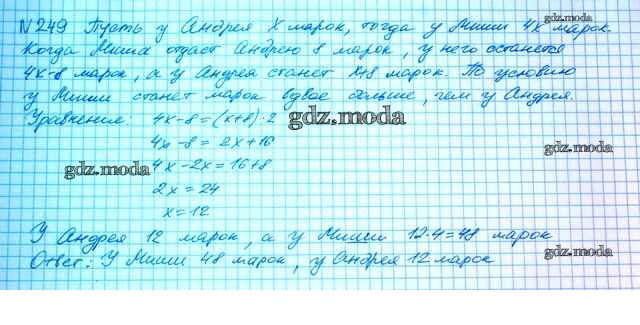 №249 Пусть у Андрея X марок, тогда у Миши 4x марок.
Когда Миша отдаст Андрею 8 марок, у него останется
4x-8 марок, а у Андрея станет x+8 марок. По условию
у Миши станет марок вдвое больше, чем у Андрея.
Уравнение: 4x-8=(x+8)·2
gdz.moda
4x-8=2x+16
gdz.moda
4x-2x=16+8
gdz.moda
2x=24
x=12
У Андрея 12 марок, а у Миши 12·4=48 марок
gdz.moda
Ответ: У Миши 48 марок, у Андрея 12 марок